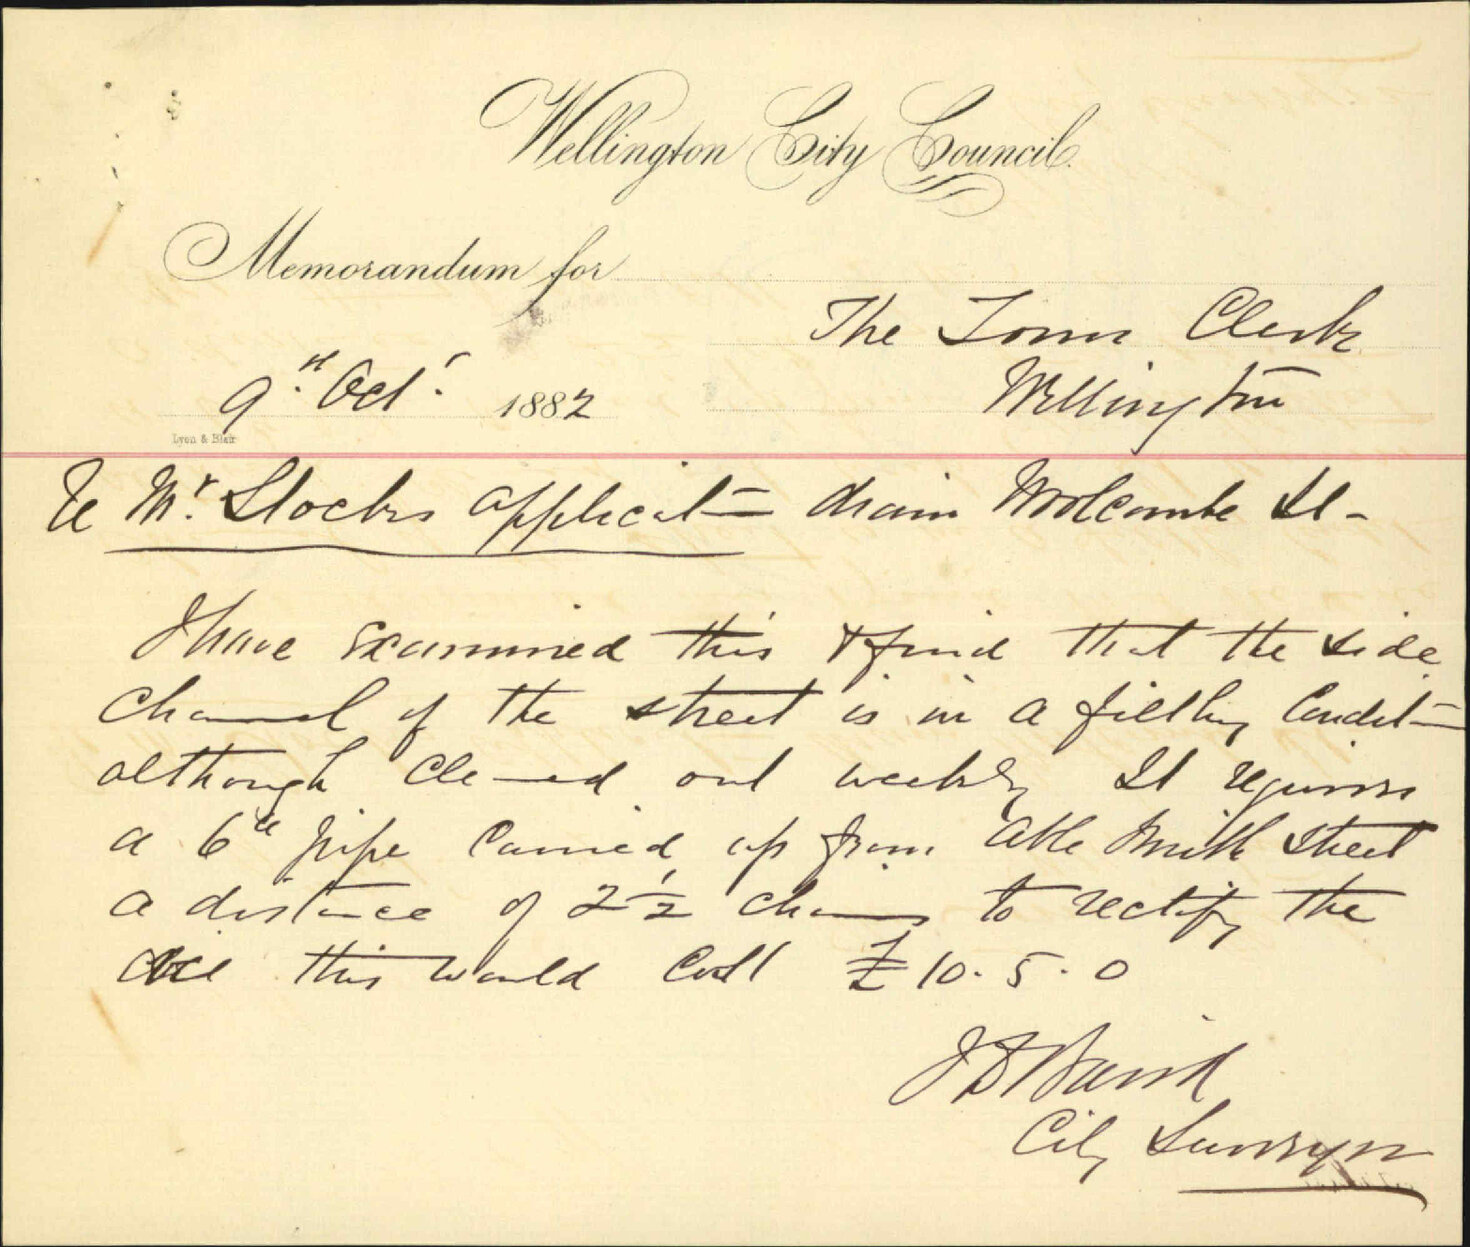 Wellington City Council.
Memorandum for
The Town Clerk
Wellington
9th Oct. 1882
Lyon & Blair
Re Mr. Stocks applicatn drain Woolcombe St-
I have examined this & find that the side
Channel of the street is in a filthy Conditn
although cleaned out weekly It requires
a 6in pipe Carried up from Able Smith Street
a distance of 2½ chains to rectify the
this would Cost £10.5.0
J D Baird
City Surveyor